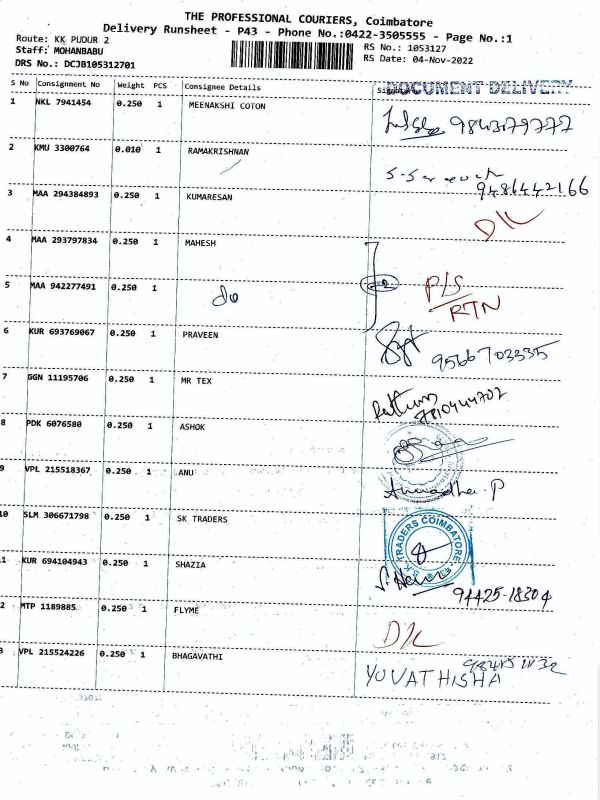 THE PROFESSIONAL COURIERS, Coimbatore
Delivery Runsheet - P43 - Phone No.:0422-3505555 - Page No.:1
Route: KK PUDUR 2
Staff: MOHANBABU
RS No.: 1053127
DRS No.: DCJB105312701
RS Date: 04-Nov-2022
S No Consignment No Weight PCS Consignee Details
DOCUMENT DELIVERY
1 NKL 7941454 0.250 1 MEENAKSHI COTON
9843179777
2 KMU 3300764 0.010 1 RAMAKRISHNAN
9486442166
3 MAA 294384893 0.250 1 KUMARESAN
D/L
4 MAA 293797834 0.250 1 MAHESH
5 MAA 942277491 0.250 1 do
P/S
RTN
6 KUR 693769067 0.250 1 PRAVEEN
9566703335
7 GGN 11195706 0.250 1 MR TEX
7810444702
8 PDK 6076580 0.250 1 ASHOK
9 VPL 215518367 0.250 1 ANU
Anuradha. P
10 SLM 306671798 0.250 1 SK TRADERS
S.K. TRADERS COIMBATORE
KUR 694104943 0.250 1 SHAZIA
94425-18304
2 MTP 1189885 0.250 1 FLYME
D/L
VPL 215524226 0.250 1 BHAGAVATHI
YUVATHISHA